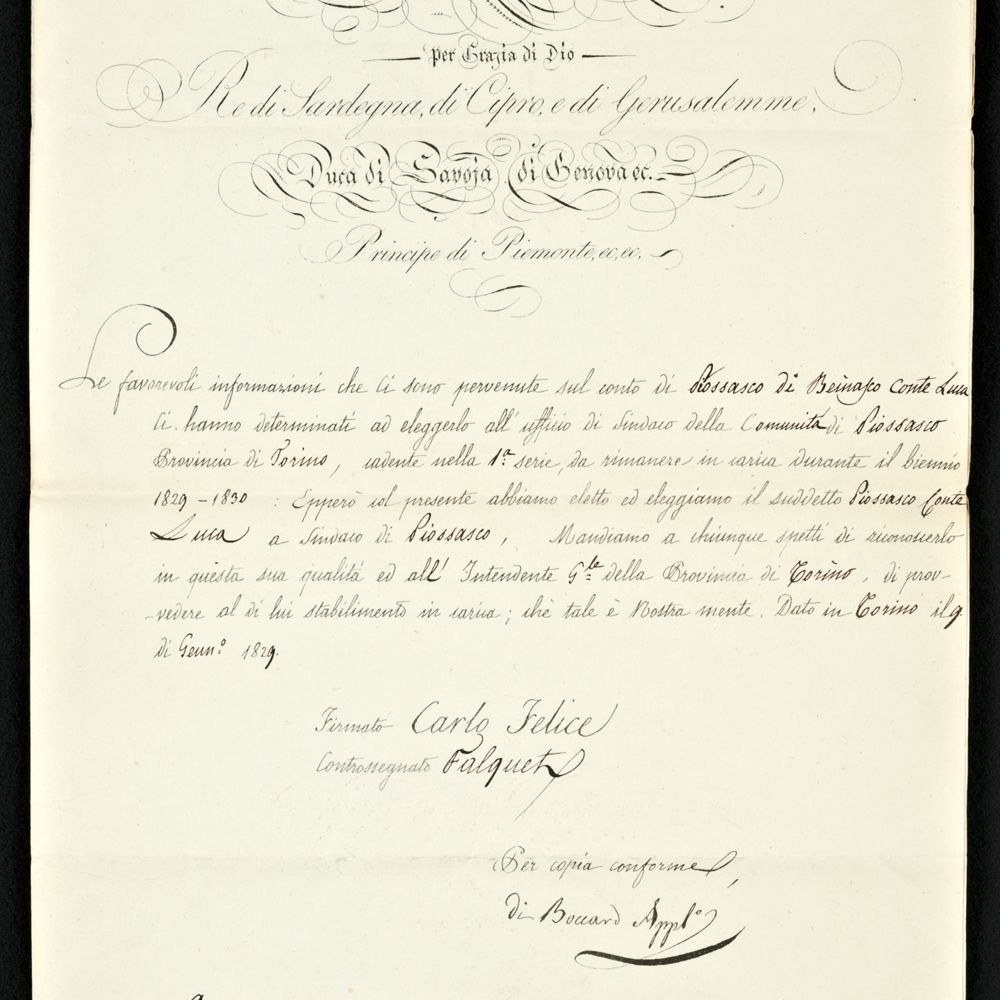 per Grazia di Dio
Re di Sardegna, di Cipro, e di Gerusalemme,
Duca di Savoja di Genova ec.
Principe di Piemonte, ec, ec,
Le favorevoli informazioni che Ci sono pervenute sul conto di Piossasco di Beinasco Conte Luca
Ci hanno determinati ad eleggerlo all' uffizio di Sindaco della Comunità di Piossasco
Provincia di Torino, cadente nella 1.ª serie, da rimanere in carica durante il biennio
1829 - 1830 : Epperò col presente abbiamo eletto ed eleggiamo il suddetto Piossasco Conte
Luca a Sindaco di Piossasco, Mandiamo a chiunque spetti di riconoscerlo
in questa sua qualità ed all' Intendente G.le della Provincia di Torino, di prov-
-vedere al di lui stabilimento in carica; chè tale è Nostra mente. Dato in Torino il 9
di Genn.º 1829.
Firmato Carlo Felice
Controssegnato Falquet
Per copia conforme,
di Boccard Appl.º